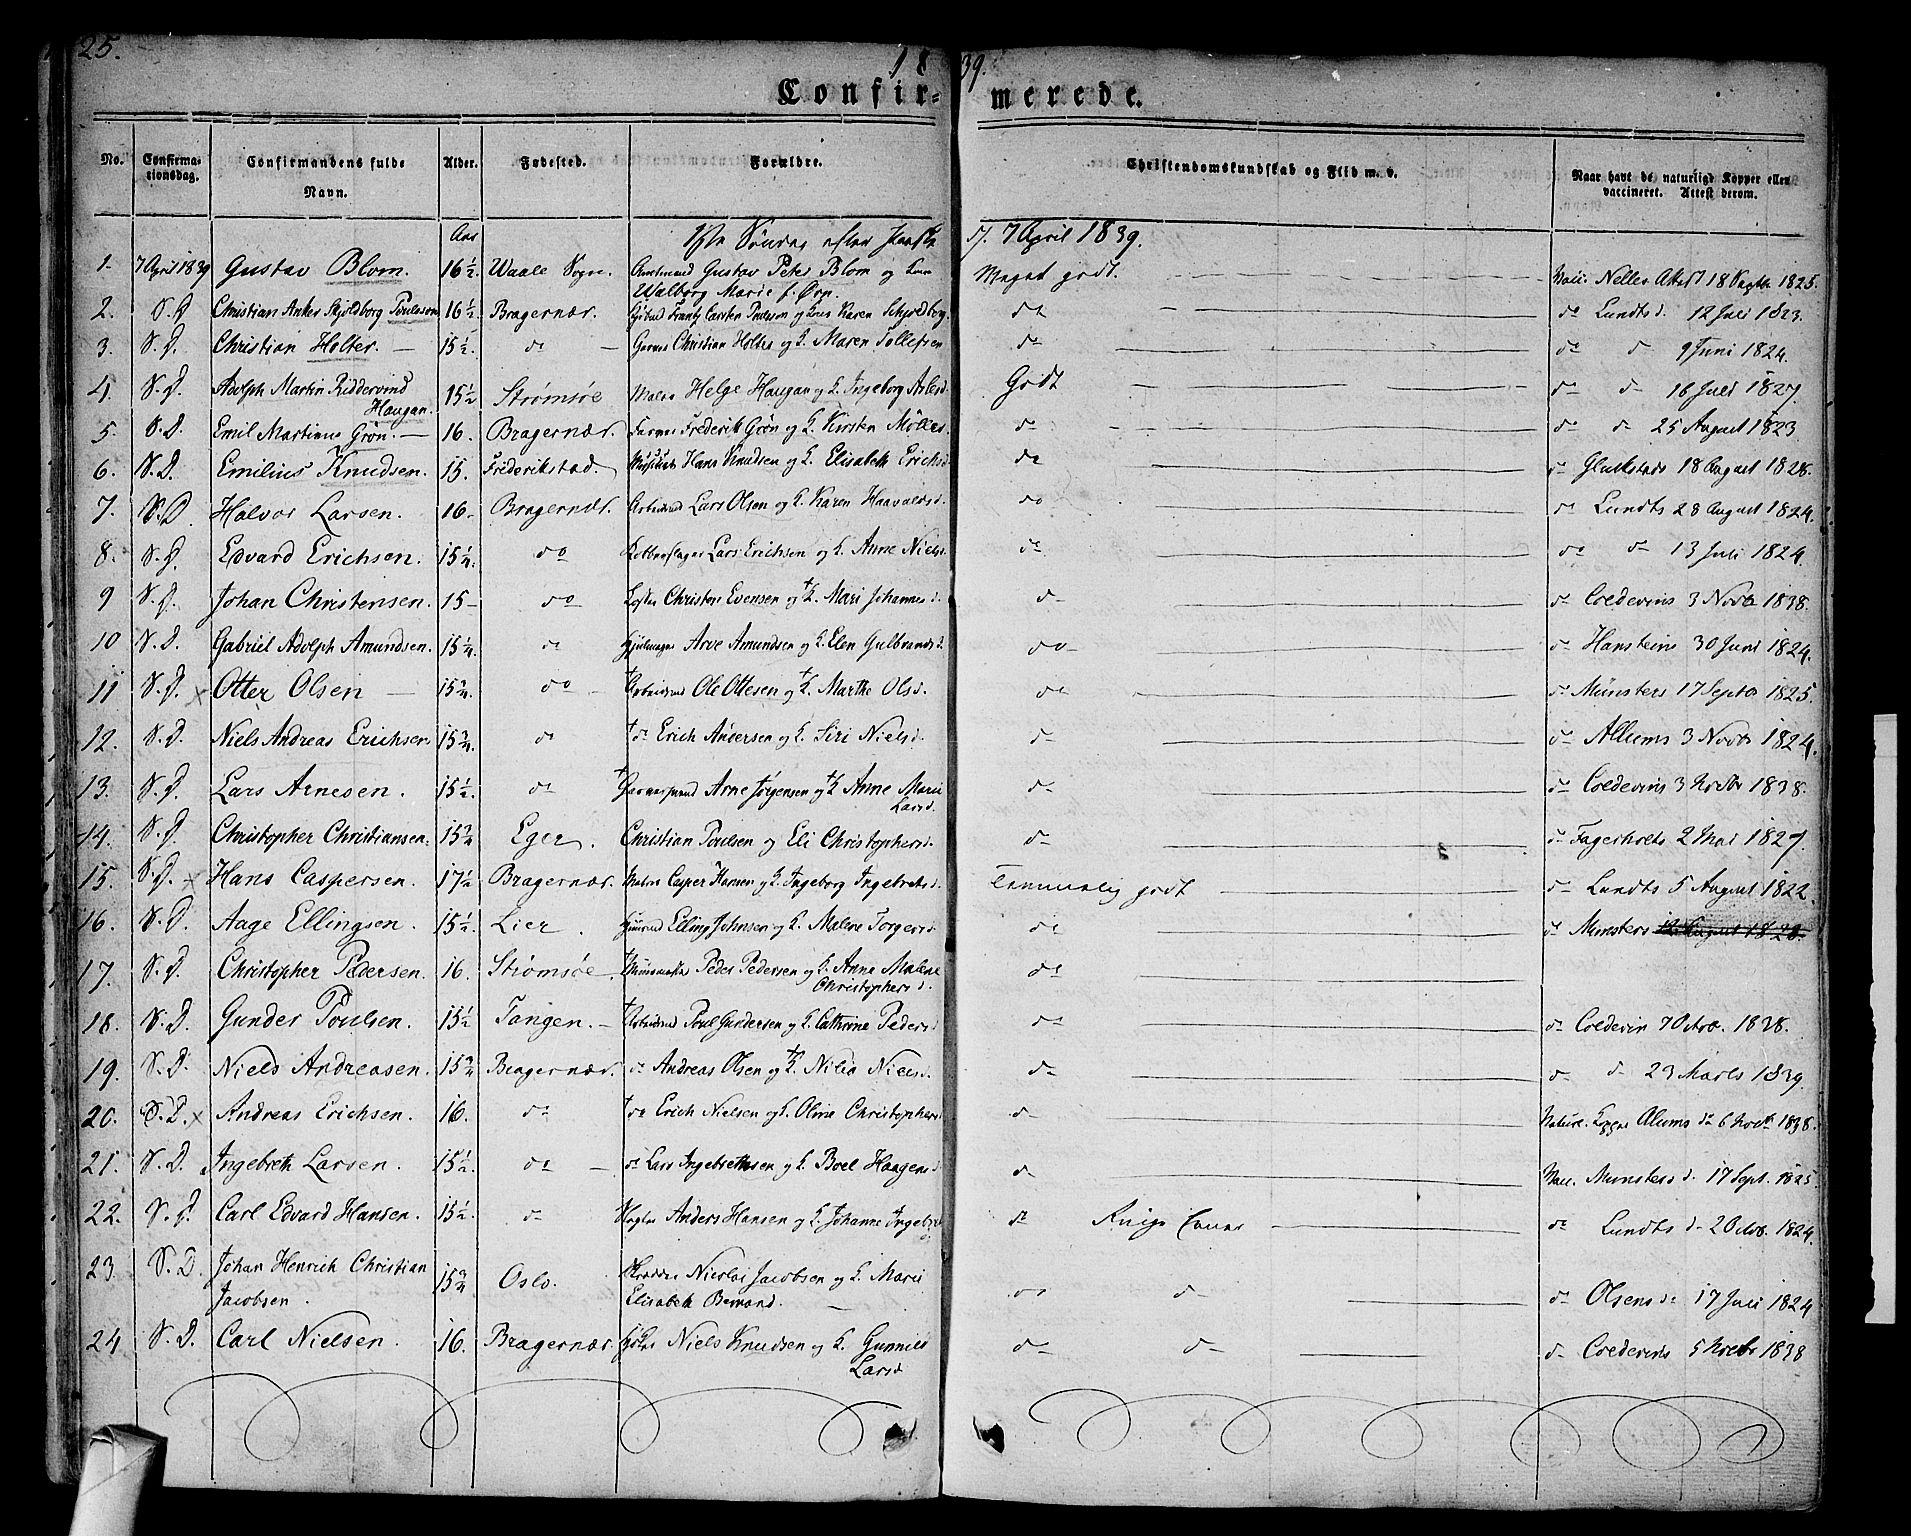 25.
18 39.
Confir= merede.
No. Confirma-tionsdag. Confirmandens fulde Navn. Alder. Fødested. Forældre. Christendomskundskab og Flid m. v. Naar havt de naturlige Kopper eller vaccineret. Attest derom.
Aar 1ste Søndag efter Paaske d. 7 April 1839.
1. 7 April 1839 Gustav Blom. 16 1/2. Waale Sogn. Amtmand Gustav Peter Blom og Meget godt. Vacc. Neller Attest 18 1825.
Walborg Marie f. Ørn
2. S. D. Christian Anker Skjoldborg Poulsson 16 1/2. Bragernæs. Frantz Carsten og Karen Schjoldborg do do Lundts d. 12 Juli 1823.
3. S. D. Christian Holter. — 15 1/2. do — Christian Holter og K. Maren Tollefsen do do d 9 Juni 1824.
4. S. D. Adolph Martin Riddervind 15 1/2 Strømsøe Maler Helge Haugan og K. Ingeborg Godt do d 16 Juli 1827.
Haugan.
5. S. D. Emil Martinus Grøn. — 16. Bragernæs. Frederik Grøn og K. Kirsten Møller do do d 25 August 1823
6. S. D. Emilius Knudsen. 15. Frederikstad. Hans Knudsen og K. Elisabeth Erichsd. do do 18 August 1828.
7. S. D. Halvor Larsen. 16- Bragernæs. Lars Olsen og K. Karen Haavalds d. do do Lundts 28 August 1824.
8. S. D. Edvard Erichsen. 15 1/4. do Lars Erichsen og K. Anne Niels d. do do do 13 Juli 1824.
9 S. D. Johan Christensen. 15- do Christen Evensen og † K. Mari Johannes d. do do Coldevins 3 Novb 1838.
10 S. D. Gabriel Adolph Amundsen. 15 1/4. do Hjulmager Arve Amundsen og K. Elen Gulbrands d. do do Hansteins 30 Juni 1824.
11 S. D. x Otter Olsen — 15 3/4. do - † Ole Ottesen og † K. Marthe Ols d. do do Münsters 17 Septb 1825.
12. S. D. Niels Andreas Erichsen 15 3/4. do † do Erich Andersen og K. Siri Niels d. do do Allums 3 Novbr 1824.
13. S. D. Lars Arnesen. 15 1/2. do † Arne Jørgensen og † K. Anne Marie do do Coldevins 3 Novbr 1838.
Lars d.
14. S. D. Christopher Christiansen. 15 3/4 Eger. Christian Poulsen og Eli Christophers d. do do 2 Mai 1827.
15. S. D. x Hans Caspersen. 17 1/2 Bragernæs. Casper Hansen og K. Ingeborg Ingebrets d. Temmelig godt do Lundts 5 August 1822.
16. S. D. Aage Ellingsen. 15 1/2. Lier. Elling Johnsen og K. Malene Torgers d. do do Münsters 12 August 1828.
17. S. D. Christopher Pedersen. 16. Strømsøe. † Peder Pedersen og K. Anne Malene do
Christophers d.
18. S. D. Gunder Poulsen. 15 1/2 Tangen. — † Poul Gundersen og K. Cathrine Peders d do do Coldevin 7 Octbr. 1838.
19. S. D. Niels Andreasen. 15 3/4 Bragernæs. do Andreas Olsen og † K. Niels d. do do do 23 Marts 1839.
20. S. D. x Andreas Erichsen. 16. do † do Erich Nielsen og K. Oline Christophers d. do Naturl. Kopper Alums do 6 Novbr 1838.
21. S. D. Ingebreth Larsen. 15 1/2. do — do Lars Ingebrethsen og K. Boel Haagens d do Vacc. Munsters d. 17 Sept. 1825
22. S. D. Carl Edvard Hansen. 15 1/2. do Anders Hansen og K. Johanne Ingebr. do do Lundts d- 2 Octb. 1824.
23 S. D. Johan Henrich Christian 15 3/4 Oslo. Nicolai Jacobsen og K. Marie do do do Olsens do 17 Juli 1824
Jacobsen. Elisabeth
24 S. D. Carl Nielsen. 16. Bragernæs. Niels Knudsen og K. do do do Coldevins 5 Novbr 1838
Lars d